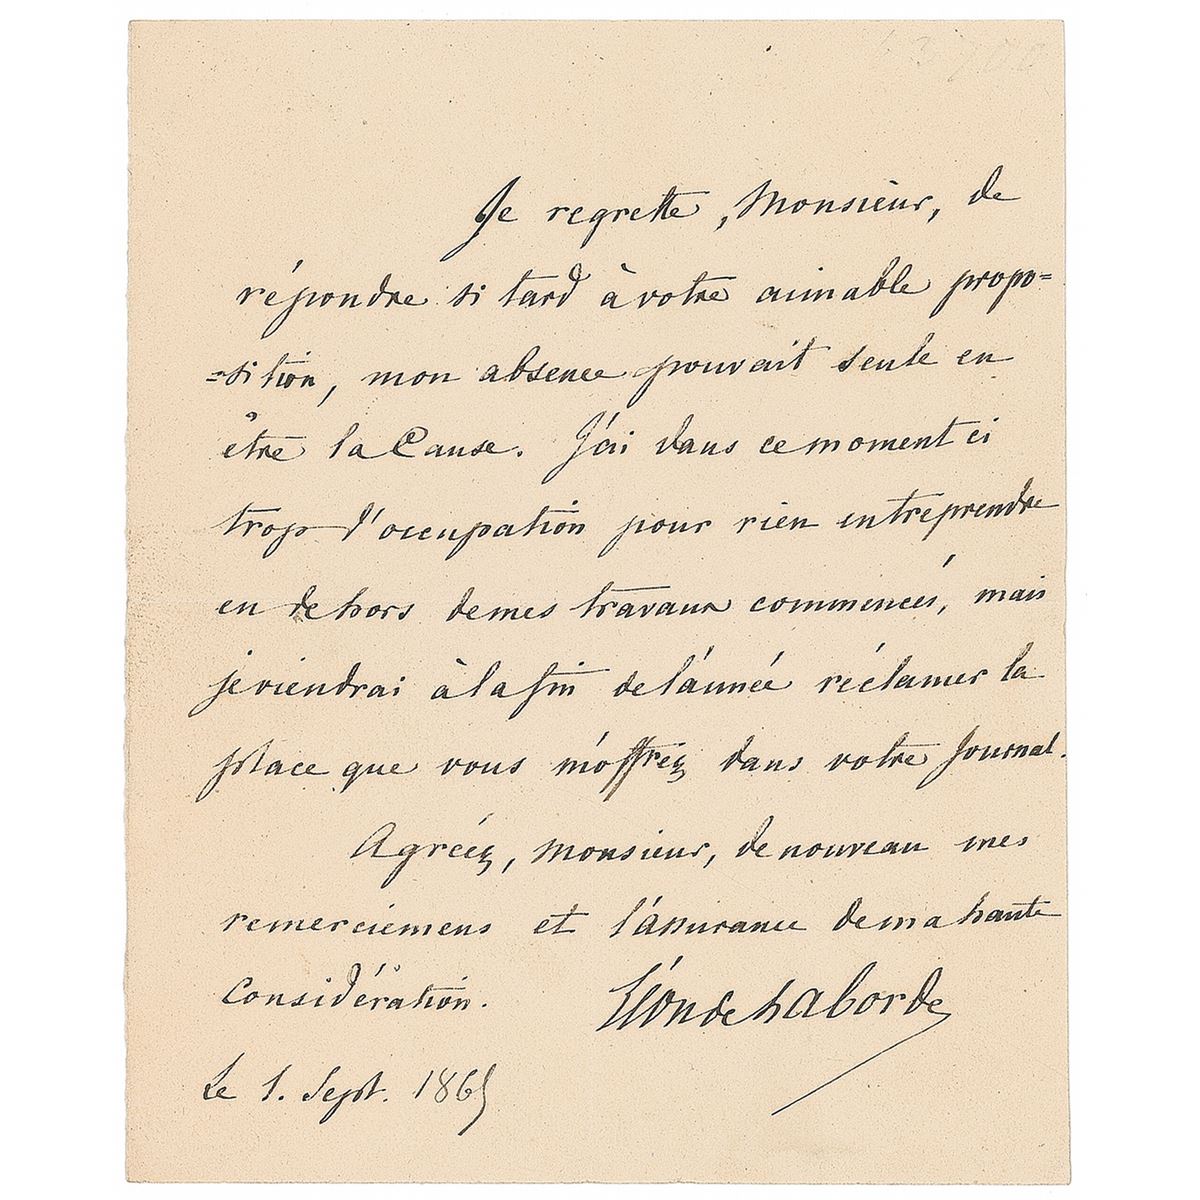 Je regrette, Monsieur, de
répondre si tard à votre aimable propo=
=sition, mon absence pouvait seule en
être la Cause. J'ai dans ce moment ci
trop d'occupation pour rien entreprendre
en dehors de mes travaux commencés, mais
je viendrai à la fin de l'année réclamer la
place que vous m'offrez dans votre Journal.
Agréez, Monsieur, de nouveau mes
remerciemens et l'assurance de ma haute
Considération.
Léon de Laborde
Le 1. Sept. 1865